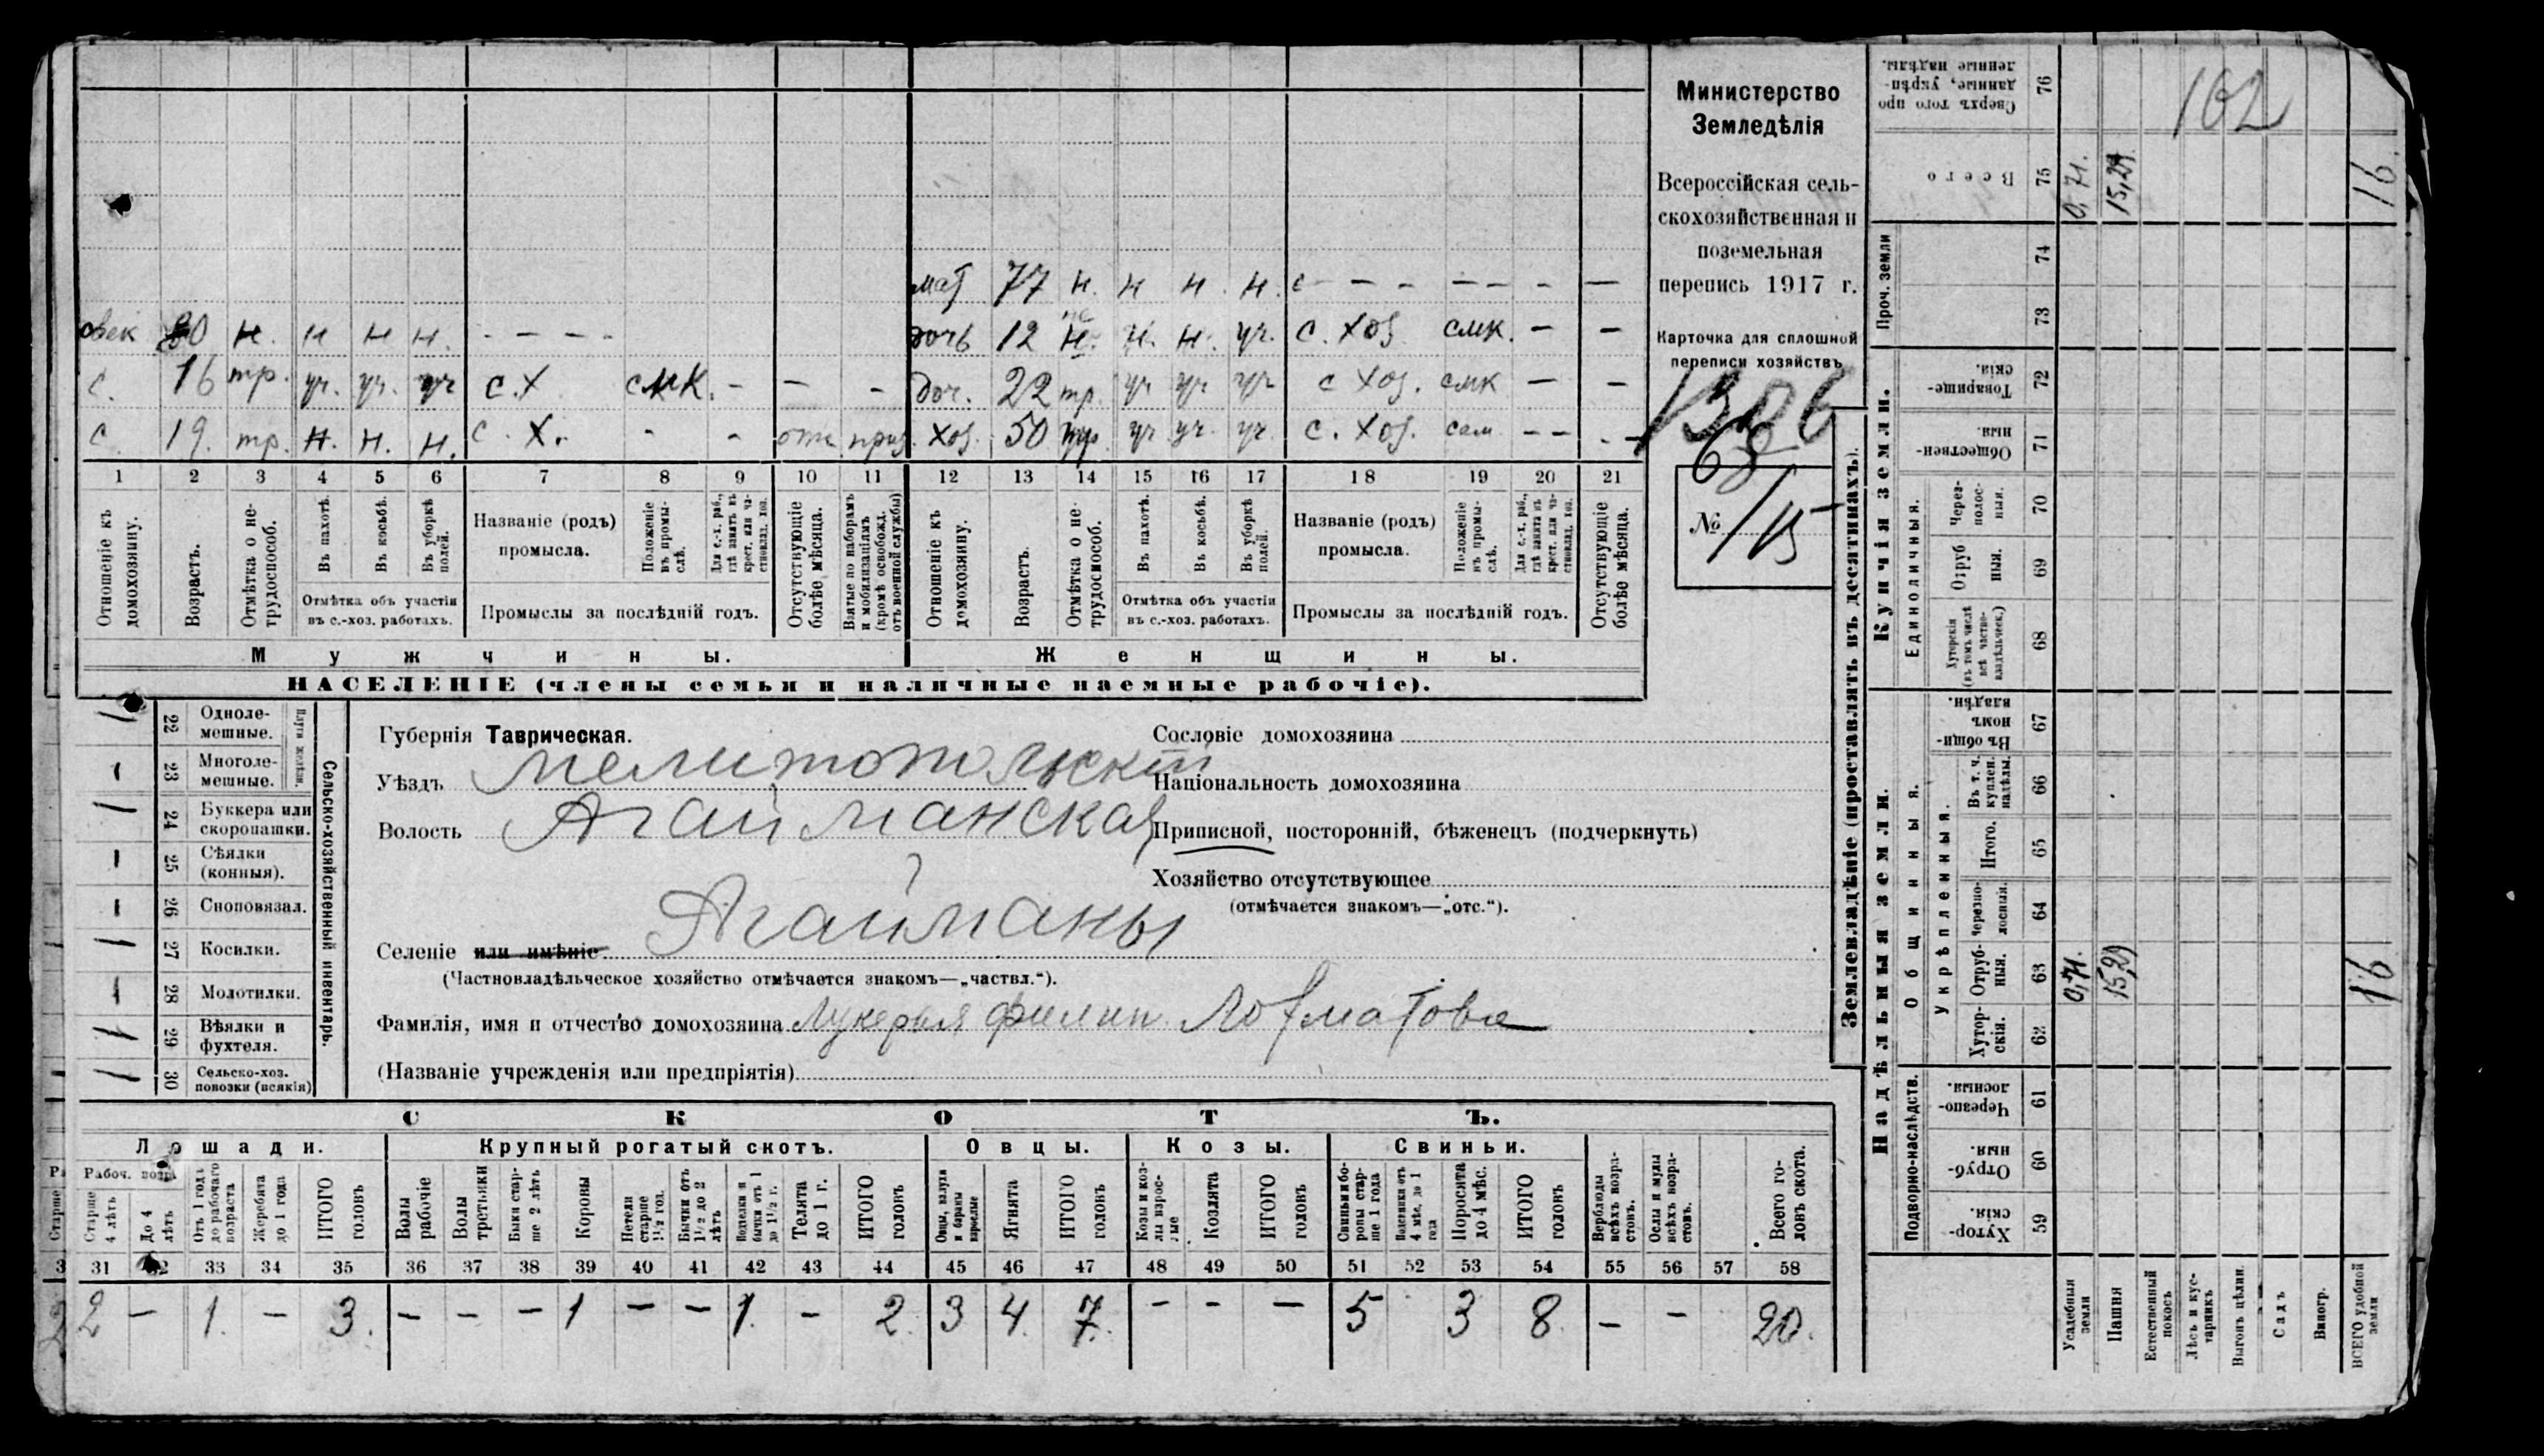 мат 77 н. н н. н. с - - - - - - -
свек 80 н. н н н. - - - -
дочь 12 н. н. н. уч. с. хоз. смк. - -
с. 16 тр. уч. уч. уч с.х смк. - - -
доч. 22 тр. уч уч уч с хоз. смк - -
с. 19. тр. н. н. н. с. х. - - отс приз.
хоз. 50 тр. уч уч. уч. с. хоз. сам - - - -
1 2 3 4 5 6 7 8 9 10 11 12 13 14 15 16 17 18 19 20 21
Отношеніе къ домохозяину.
Возрастъ.
Отмѣтка о нетрудоспособ.
Въ пахотѣ.
Въ косьбѣ.
Въ уборкѣ полей.
Отмѣтка объ участіи въ с.-хоз. работахъ.
Названіе (родъ) промысла.
Положеніе въ промыслѣ.
Для с.-х. раб., гдѣ занятъ въ крест. или частновлад. хоз.
Промыслы за послѣдній годъ.
Отсутствующіе болѣе мѣсяца.
Взятые по наборамъ и мобилизаціямъ (кромѣ освобожд. отъ военной службы)
Отношеніе къ домохозяину.
Возрастъ.
Отмѣтка о нетрудоспособ.
Въ пахотѣ.
Въ косьбѣ.
Въ уборкѣ полей.
Отмѣтка объ участіи въ с.-хоз. работахъ.
Названіе (родъ) промысла.
Положеніе въ промыслѣ.
Для с.-х. раб., гдѣ занятъ въ крест. или частновлад. хоз.
Промыслы за послѣдній годъ.
Отсутствующіе болѣе мѣсяца.
Мужчины.
Женщины.
НАСЕЛЕНІЕ (члены семьи и наличные наемные рабочіе).
Министерство
Земледѣлія
Всероссійская сель-
скохозяйственная и
поземельная
перепись 1917 г.
Карточка для сплошной
переписи хозяйствъ
1306
68
№ /15
/ 22 Однолемешные.
- 23 Многолемешные.
/ 24 Буккера или скоропашки.
- 25 Сѣялки (конныя).
- 26 Сноповязал.
/ 27 Косилки.
- 28 Молотилки.
/ 29 Вѣялки и фухтеля.
/ 30 Сельско-хоз. повозки (всякія)
Сельско-хозяйственный инвентарь.
Губернія Таврическая.
Уѣздъ Мелитопольскій
Волость Агайманская
Селеніе или имѣніе Агайманы
(Частновладѣльческое хозяйство отмѣчается знакомъ—„частвл.“).
Фамилія, имя и отчество домохозяина Лукерья Филип.
(Названіе учрежденія или предпріятія)
Сословіе домохозяина
Національность домохозяина
Приписной, посторонній, бѣженецъ (подчеркнуть)
Хозяйство отсутствующее
(отмѣчается знакомъ—„отс.“).
СКОТЪ.
Лошади. Крупный рогатый скотъ. Овцы. Козы. Свиньи.
Рабоч. возр.
Старше 4 лѣтъ
До 4 лѣтъ
Отъ 1 года до рабочаго возраста
Жеребята до 1 года
ИТОГО головъ
Волы рабочіе
Волы третьяки
Быки старше 2 лѣтъ
Коровы
Нетели старше 1½ год.
Бычки отъ 1½ до 2 лѣтъ
Телята до 1 г.
ИТОГО головъ
Ягнята
ИТОГО головъ
Козы и козлы взрослые
Козлята
ИТОГО головъ
Свиньи и боровы старше 1 года
Поросята до 4 мѣс.
ИТОГО головъ
Верблюды всѣхъ возрастовъ.
Ослы и мулы всѣхъ возрастовъ.
Всего головъ скота.
31 32 33 34 35 36 37 38 39 40 41 42 43 44 45 46 47 48 49 50 51 52 53 54 55 56 57 58
2 - 1. - 3. - - - 1 - - 1. - 2. 3 4. 7. - - - 5 3 8. - - 20.
Землевладѣніе (проставлять въ десятинахъ).
Купчія земли.
Надѣльныя земли.
Сверхъ того проданные, укрѣпленные надѣлы. 76
102
Всего 75 0,71. 15,29 16.
Проч. земли 74
73
Товарищескія. 72
Общественныя. 71
Единоличныя.
Черезполосныя. 70
Отрубныя. 69
Хуторскія (въ томъ числѣ всѣ частновладѣльческ.) 68
Общинныя.
Въ общинномъ владѣн. 67
Укрѣпленныя.
Въ т. ч. куплен. надѣлы. 66
Итого. 65
Черезполосныя. 64
Отрубныя. 63 0,71. 15,29 16
Хуторскія. 62
Подворно-наслѣдств.
Черезполосныя. 61
Отрубныя. 60
Хуторскія. 59
Усадебныя земли
Пашня
Естественный покосъ
Лѣсъ и кустарникъ
Выгонъ цѣлин.
Садъ
Виногр.
ВСЕГО удобной земли